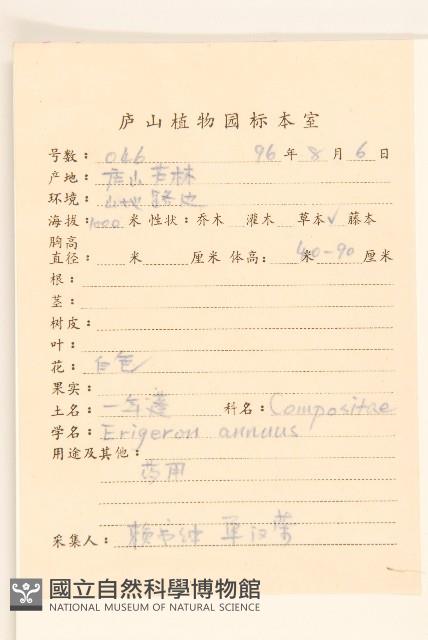 庐山植物园标本室
号数：046 96年8月6日
产地：庐山 林
环境：山地路边
海拔：1000米 性状：乔木 灌木 草本✓ 藤本
胸高
直径： 米 厘米 体高： 米40-90厘米
根：
茎：
树皮：
叶：
花：白色
果实：
土名：一年蓬 科名：Compositae
学名：Erigeron annuus
用途及其他：
药用
采集人：赖书绅
國立自然科學博物館
NATIONAL MUSEUM OF NATURAL SCIENCE